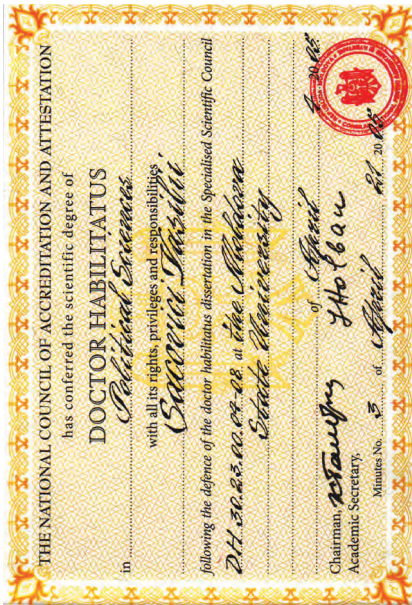 THE NATIONAL COUNCIL OF ACCREDITATION AND ATTESTATION
has conferred the scientific degree of
DOCTOR HABILITATUS
in Political Sciences
with all its rights, privileges and responsibilities
Sacovici Vasilii
following the defence of the doctor habilitatus dissertation in the Specialised Scientific Council
D.H. 30.23.00.04-08 at the Moldova
State University
of April 2005
Chairman,
Academic Secretary, Holban
Minutes No. 3 of April 21 2005